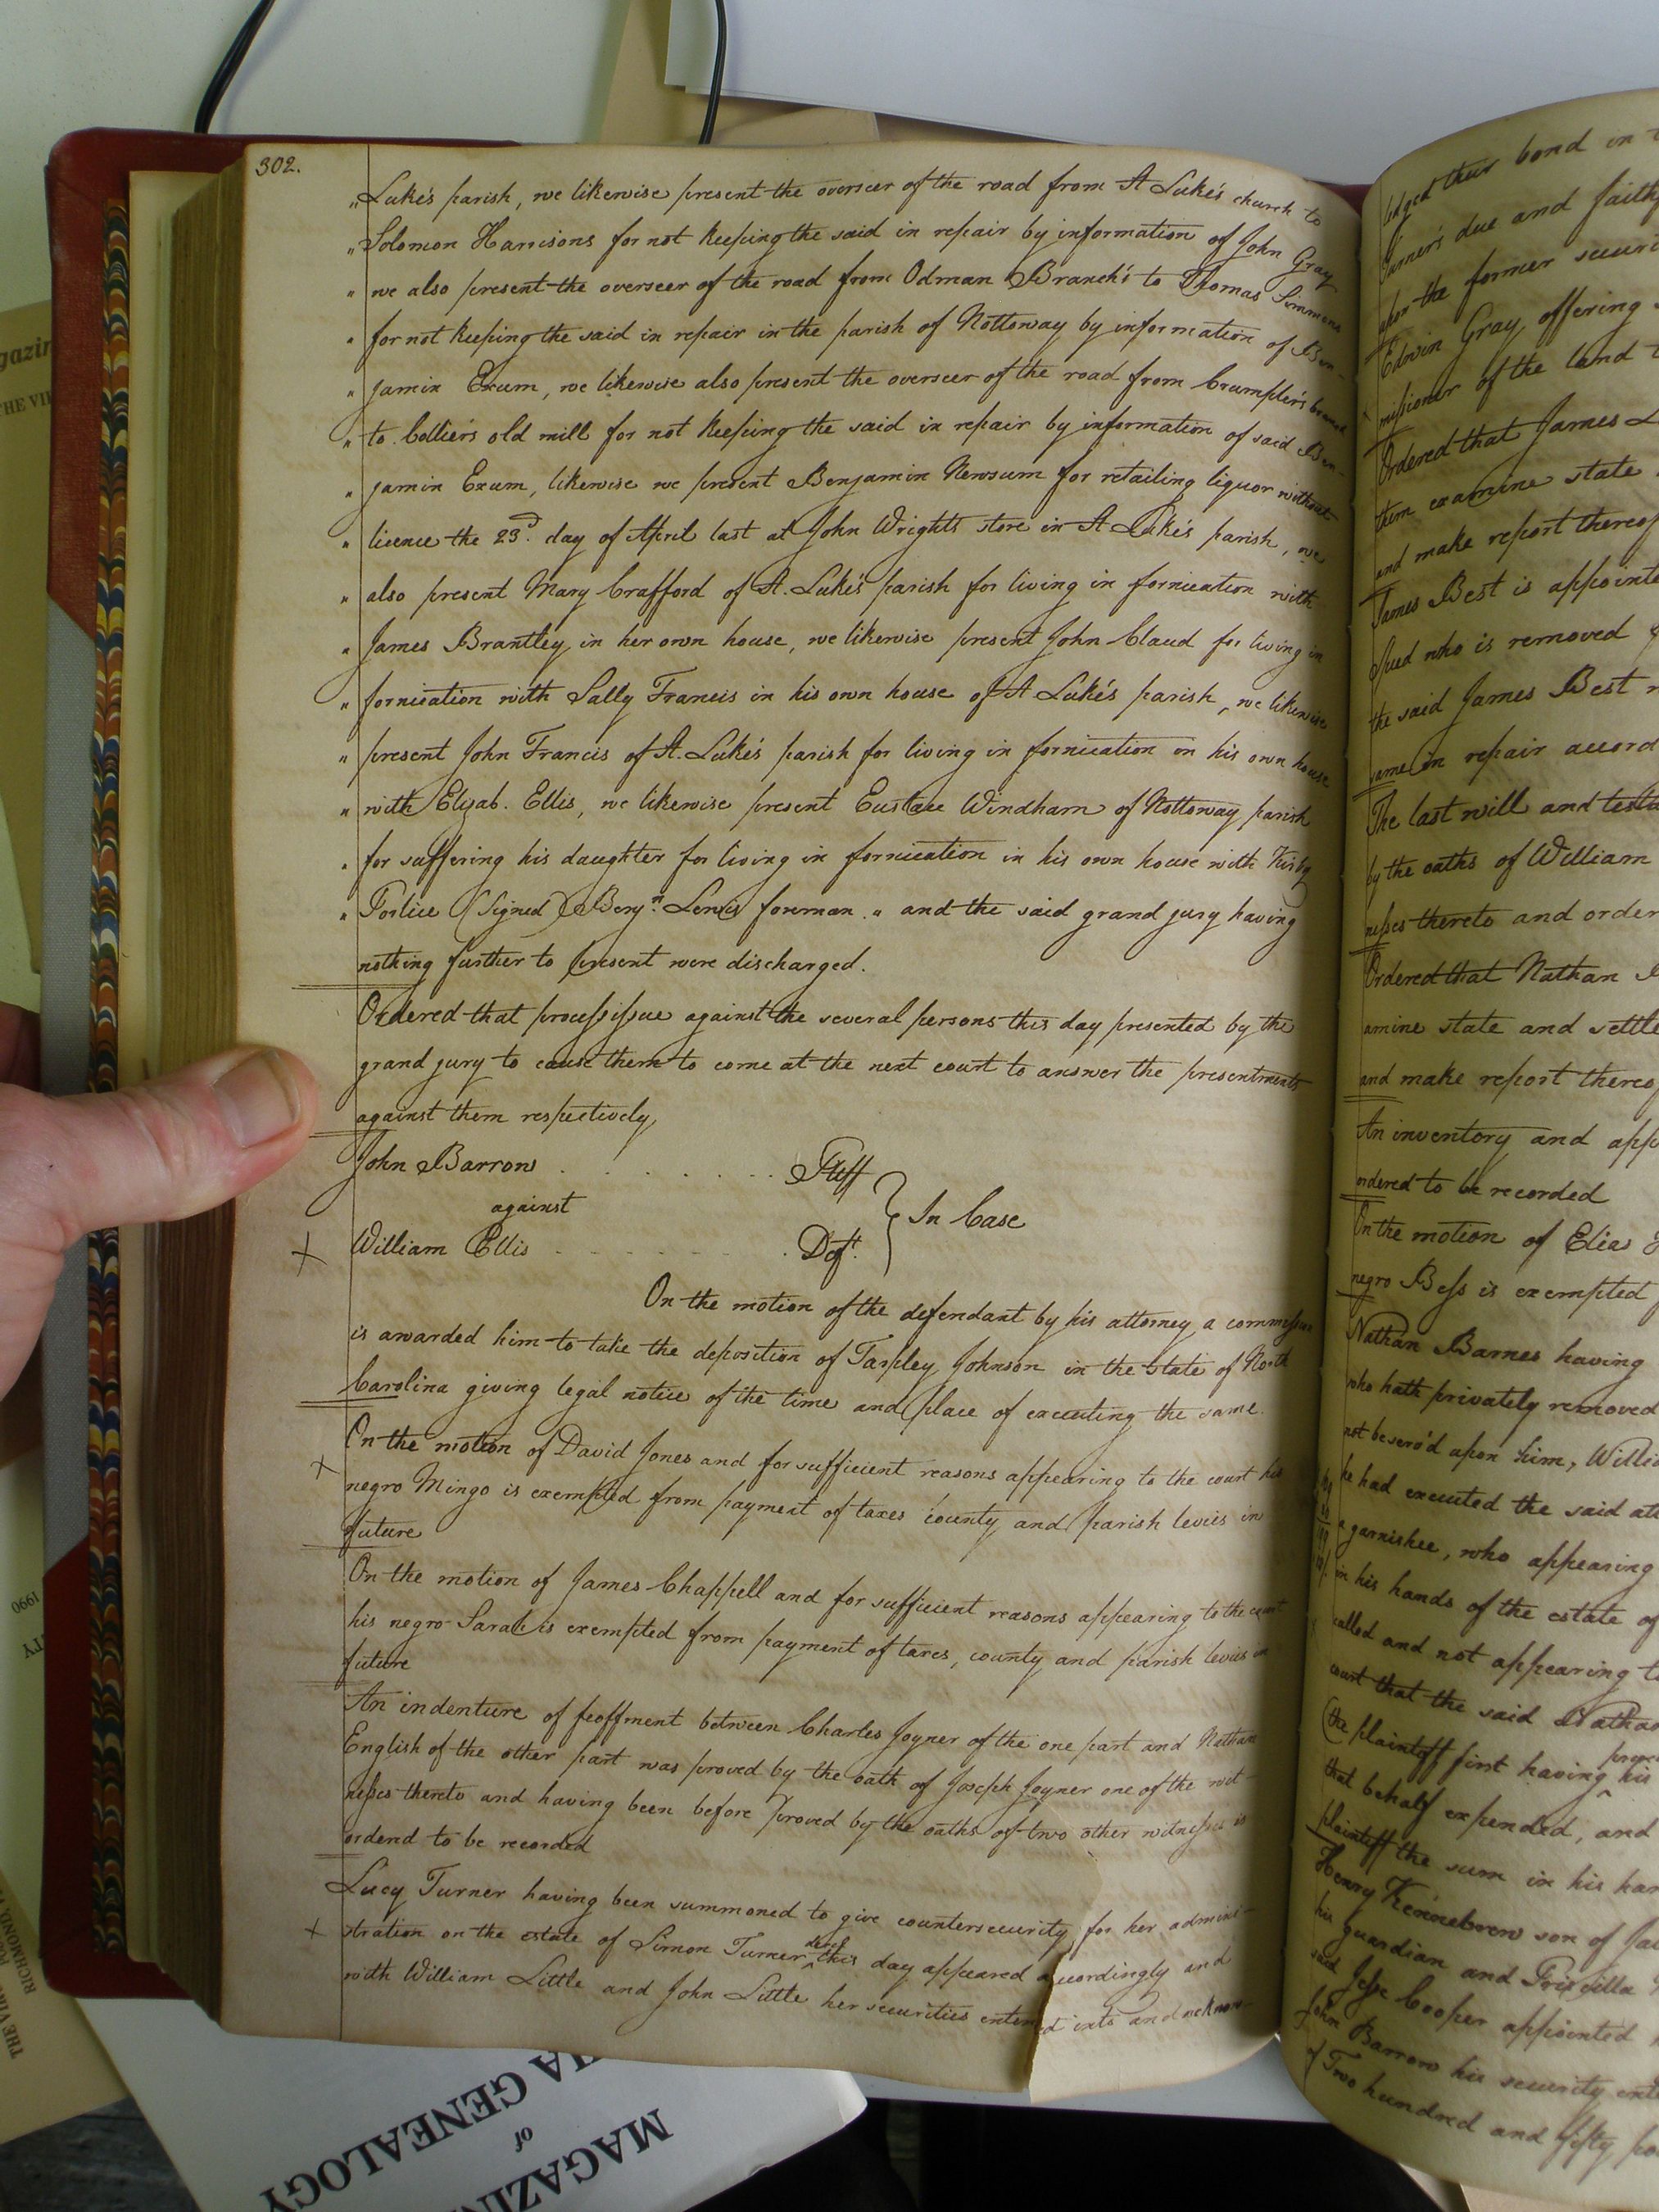 302.
" Luke's parish, we likewise present the overseer of the road from St Luke's church to
" Solomon Harrisons for not keeping the said in repair by information of John Gray
" we also present the overseer of the road from Odman Branch's to Thomas Simmons
" for not keeping the said in repair in the parish of Nottoway by information of Ben-
" jamin Exum, we likewise also present the overseer of the road from Crumpler's
" to Collier's old mill for not keeping the said in repair by information of said Ben-
" jamin Exum, likewise we present Benjamin Newsum for retailing liquor without
" licence the 23d. day of April last at John Wrights store in St Luke's parish, we
" also present Mary Crafford of St. Luke's parish for living in fornication with
" James Brantley in her own house, we likewise present John Claud for living in
" fornication with Sally Francis in his own house of St Luke's parish, we likewise
" present John Francis of St. Luke's parish for living in fornication in his own house
" with Elizab. Ellis, we likewise present Eustace Windham of Nottoway parish
" for suffering his daughter for living in fornication in his own house with Kirby
" (Signed) Benjn. Lewis foreman. " and the said grand jury having
nothing further to present were discharged.
Ordered that process issue against the several persons this day presented by the
grand jury to cause them to come at the next court to answer the presentments
against them respectively
John Barrow . . . . . . . Pltff
against } In Case
William Ellis . . . . . . . Deft.
On the motion of the defendant by his attorney a commission
is awarded him to take the deposition of Tarpley Johnson in the state of North
Carolina giving legal notice of the time and place of executing the same.
On the motion of David Jones and for sufficient reasons appearing to the court his
negro Mingo is exempted from payment of taxes county and parish levies in
future
On the motion of James Chappell and for sufficient reasons appearing to the court
his negro Sarah is exempted from payment of taxes, county and parish levies in
future
An indenture of feoffment between Charles Joyner of the one part and Nathan
English of the other part was proved by the oath of Joseph Joyner one of the wit-
nesses thereto and having been before proved by the oaths of two other witnesses is
ordered to be recorded
Lucy Turner having been summoned to give countersecurity for her admini-
stration on the estate of Simon Turner decd this day appeared accordingly and
with William Little and John Little her securities entered into and acknow-
ledged their bond in
Turner's due and faith
upon the former securi
Edwin Gray offering
missioner of the land
Ordered that James
them examine state
and make report thereof
James Best is appointe
who is removed
the said James Best
same in repair accord
The last will and testa
by the oaths of William
nesses thereto and order
Ordered that Nathan
amine state and settle
and make report thereof
An inventory and app
ordered to be recorded
On the motion of Elias
negro Bess is exempted
Nathan Barnes having
who hath privately removed
not be serv'd upon him, Willia
he had executed the said att
a garnishee, who appearing
in his hands of the estate of
called and not appearing to
court that the said Nathan
(the plaintiff first having his
that behalf expended, and
plaintiff the sum in his han
Henry Kennebrew son of Ja
his guardian and Priscilla
said Jesse Cooper appointed
John Barrow his security ente
of Two hundred and fifty po
MAGAZIN
of
A GENEALOGY
gazin
THE VI
1990
RICHMOND,
THE VIR